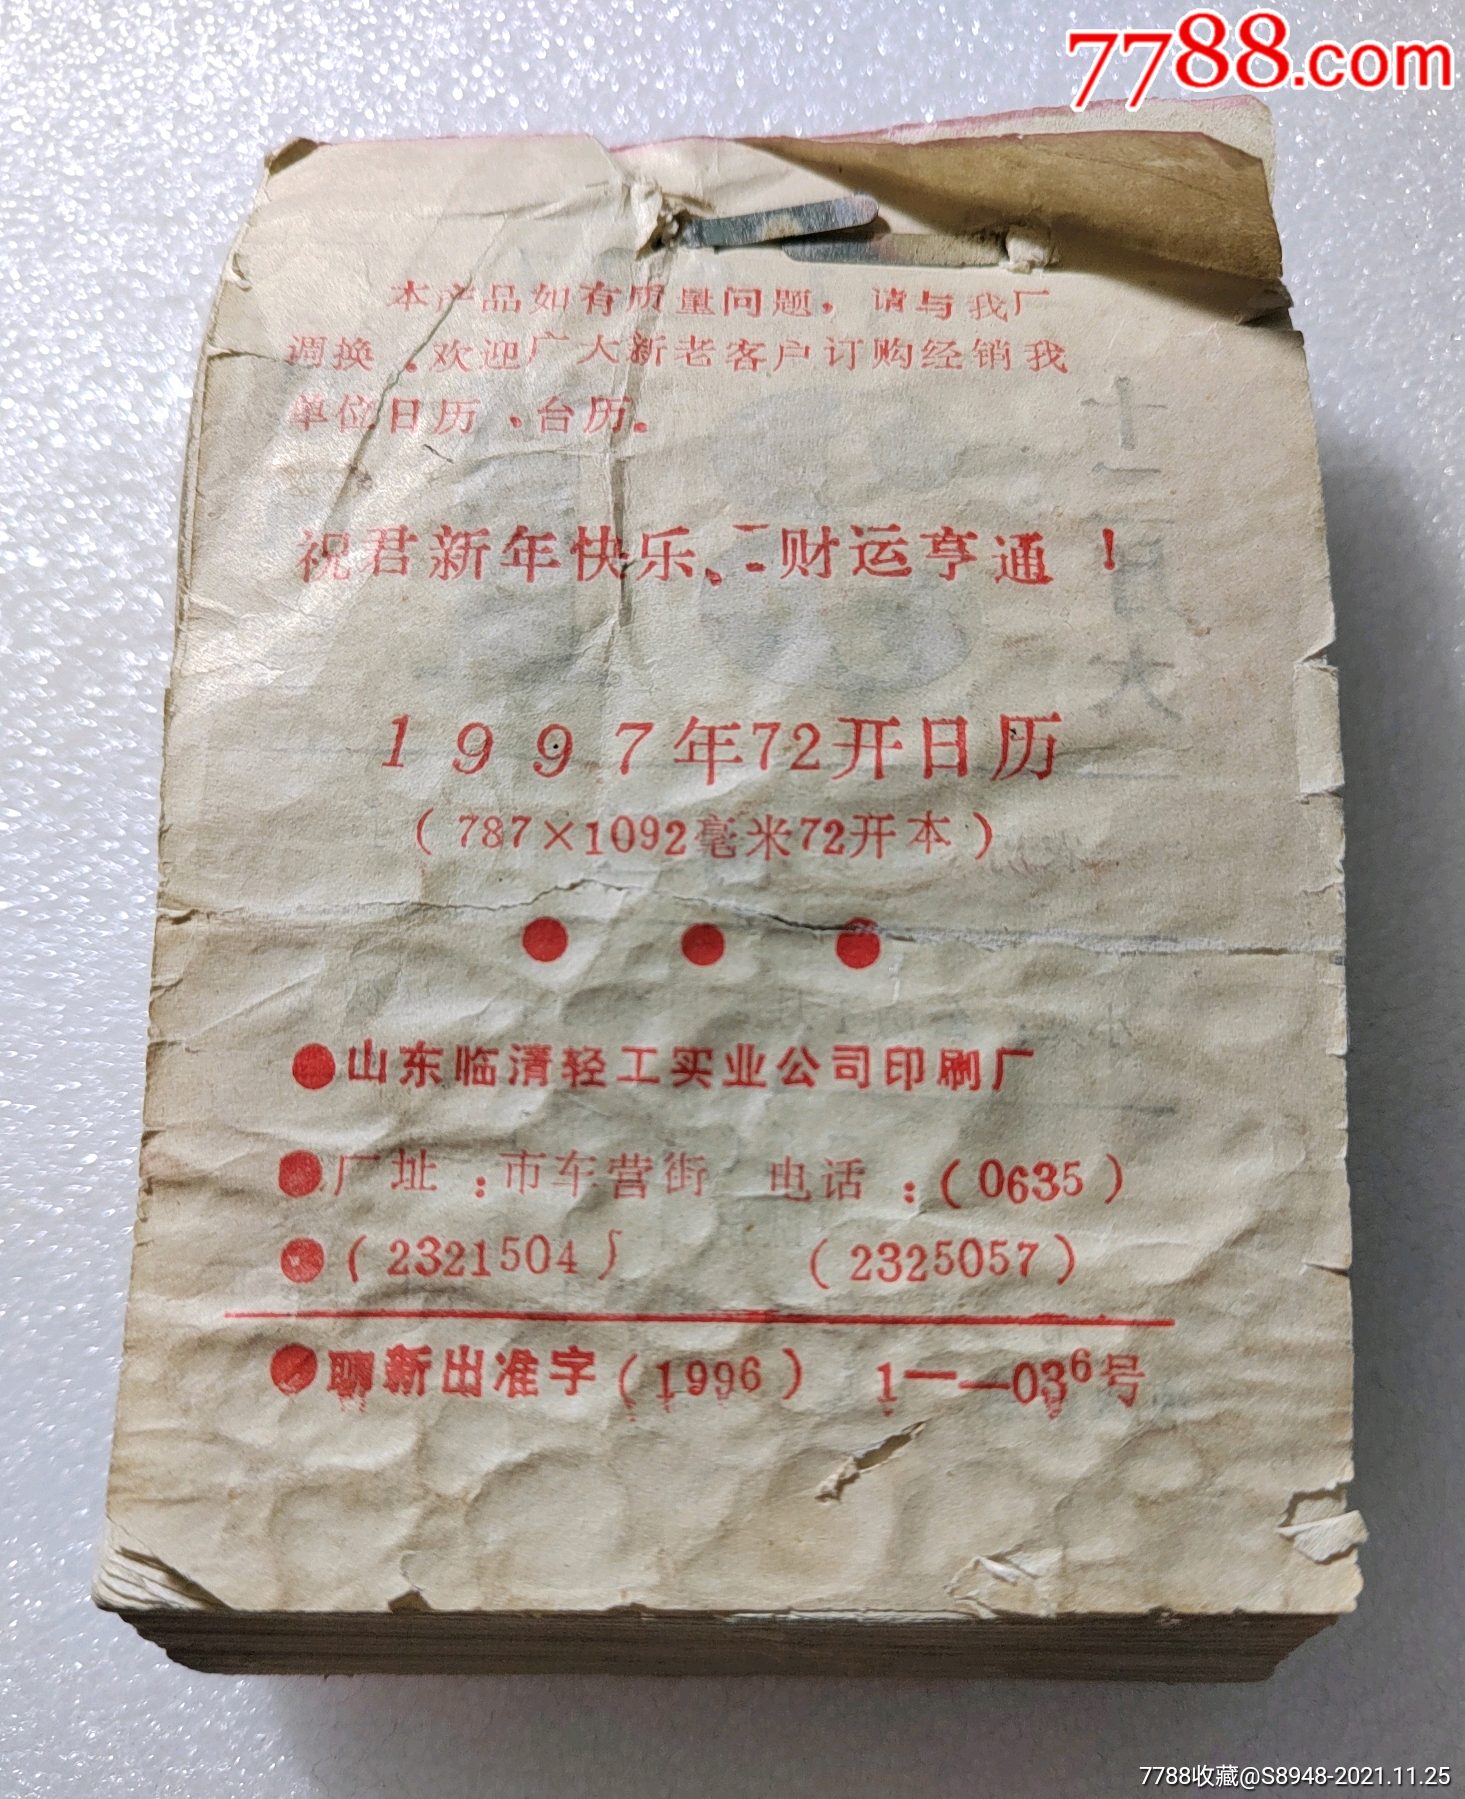 7788.com
本产品如有质量问题，请与我厂
调换．欢迎广大新老客户订购经销我
单位日历、台历。
祝君新年快乐、财运亨通！
1997年72开日历
(787×1092毫米72开本)
●●●
●山东临清轻工实业公司印刷厂
●厂址：市车营街 电话：(0635)
●(2321504) (2325057)
●聊新出准字(1996) 1——036号
十二月大
7788收藏@S8948-2021.11.25